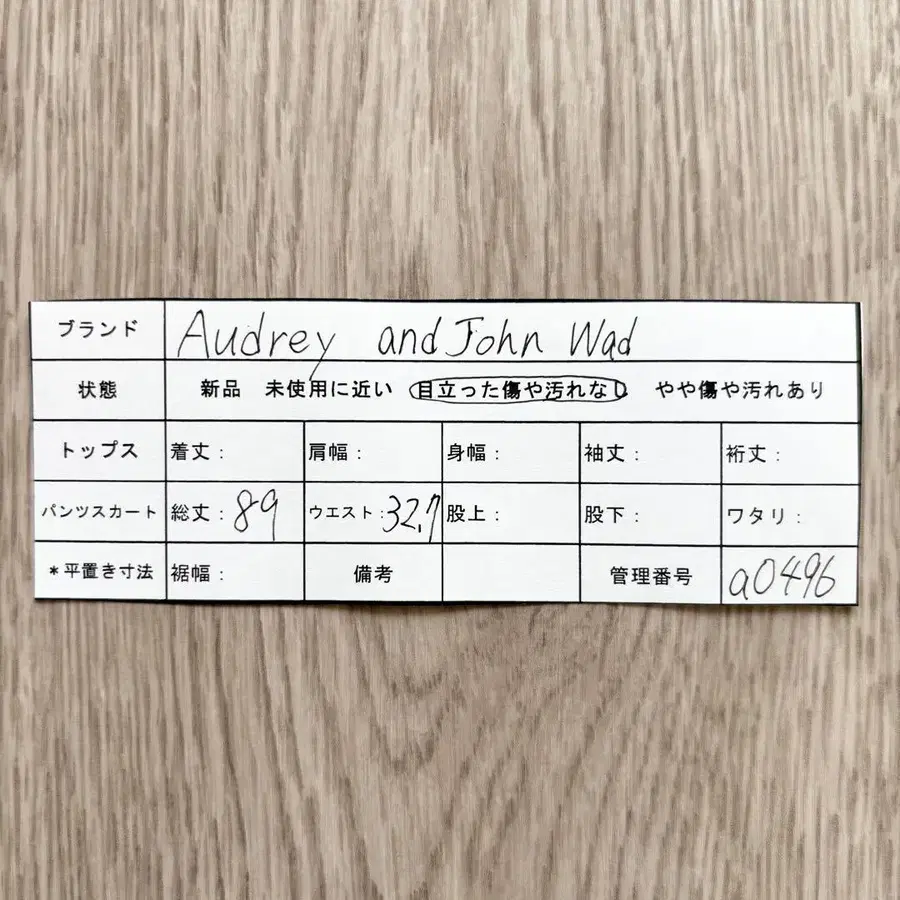 ブランド Audrey and John Wad
状態 新品 未使用に近い 目立った傷や汚れなし やや傷や汚れあり
トップス 着丈: 肩幅: 身幅: 袖丈: 裄丈:
パンツスカート 総丈:89 ウエスト:32,7 股上: 股下: ワタリ:
*平置き寸法 裾幅: 備考 管理番号 a0496